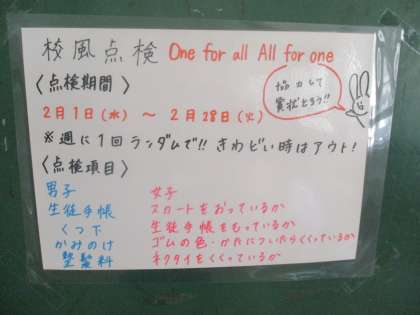 校風点検 One for all All for one
〈点検期間〉
協力して
賞状とろう!!
2月1日(水) 〜 2月28日(火)
※週に1回ランダムで!! きわどい時はアウト!
〈点検項目〉
男子
生徒手帳
くつ下
かみのけ
整髪料
女子
スカートをおっているか
生徒手帳をもっているか
ゴムの色・かたについたらくくっているか
ネクタイをくくっているか